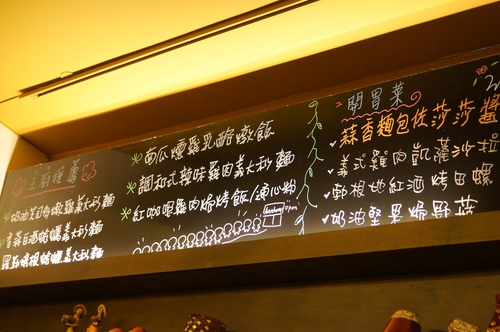 主廚推薦
奶油
義大利麵
青醬白酒蛤蠣義大利麵
蛤蠣義大利麵
南瓜燻雞乳酪燉飯
調和式辣味雞肉義大利麵
紅咖哩雞肉焗烤飯/通心粉
開胃菜
蒜香麵包佐莎莎醬
義式雞肉凱薩沙拉
勃根地紅酒烤田螺
奶油堅果焗野菇